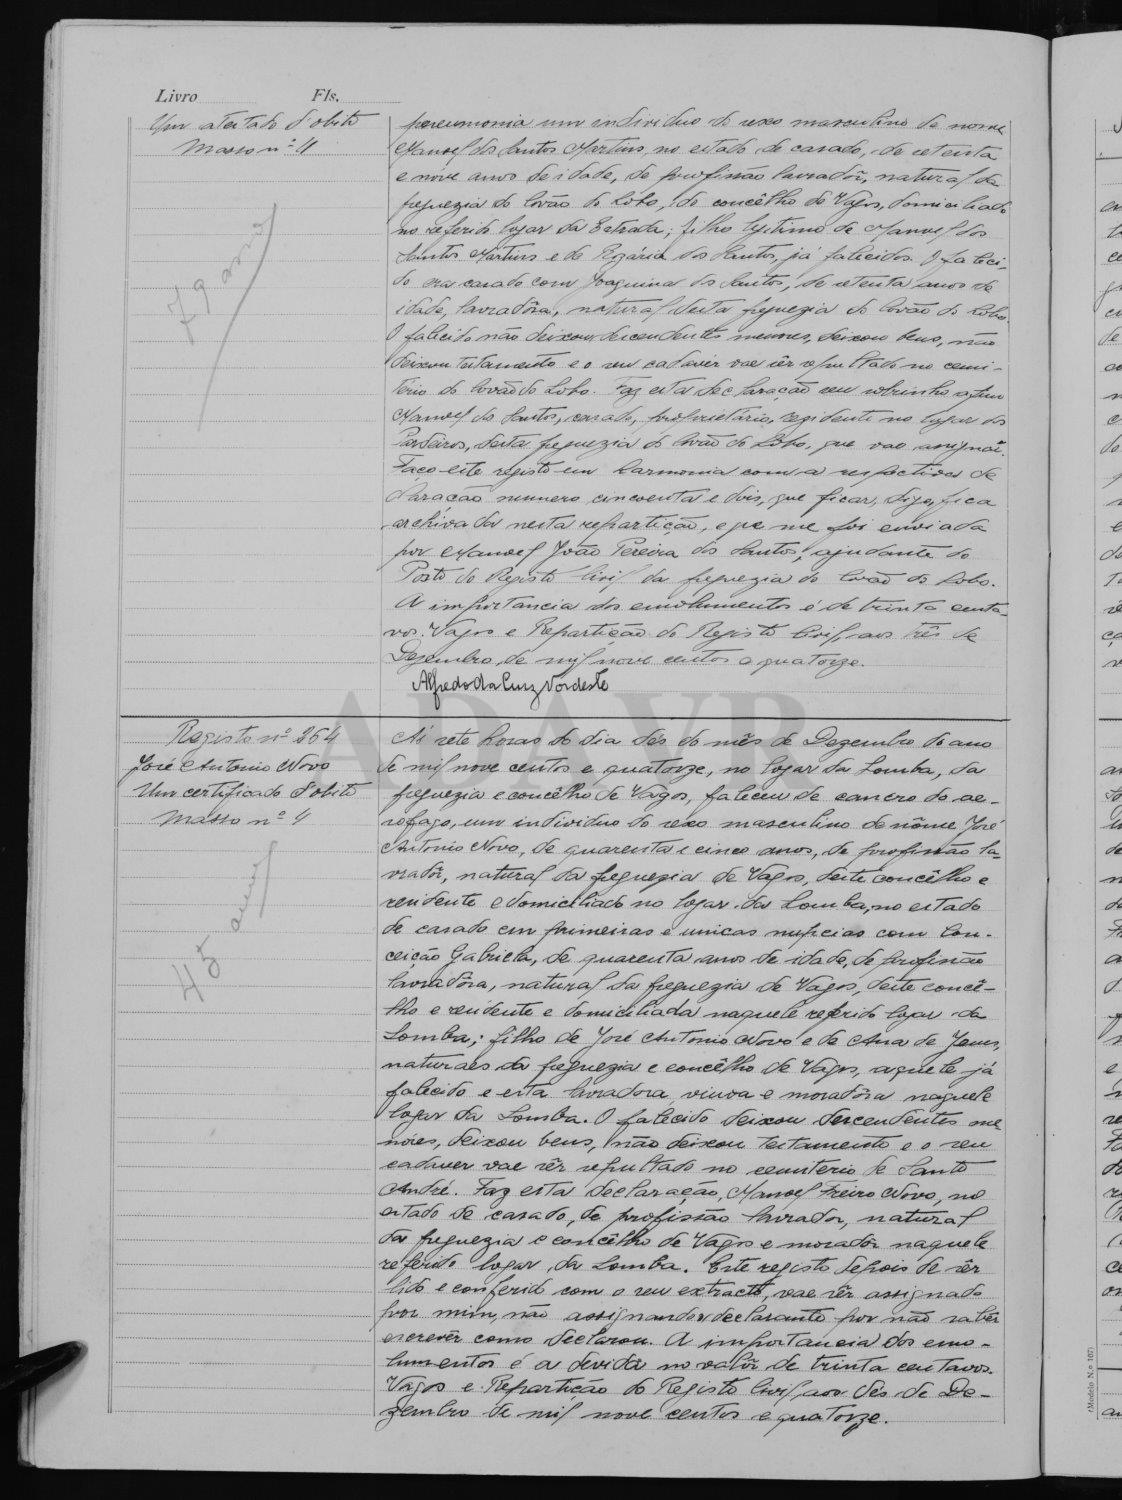 Livro Fls.
Um atestado d'obito
Masso nº 4
79 anos
pneumonia um individuo do sexo masculino de nome
Manoel dos Santos Martins, no estado de casado, de setenta
e nove anos de idade, de profissão lavradôr, natural da
freguezia de Covão do Lobo, do concêlho de Vagos, domiciliado
no referido logar da Estrada; filho legitimo de Manoel dos
Santos Martins e de Rozária dos Santos, já falecidos. O faleci-
do era casado com Joaquina dos Santos, de setenta anos de
idade, lavradôra, natural desta freguezia do Covão do Lobo.
O falecido não deixou descendentes menores, deixou bens, não
deixou testamento e o seu cadaver vae sêr sepultado no cemi-
tério do Covão do Lobo. Faz esta declaração seu sobrinho
Manoel dos Santos, casado, proprietário, rezidente no logar dos
Pardeiros, desta freguezia do Covão do Lobo, que vae assignar.
Faço este registo em harmonia com a respectiva de
claração numero cincoenta e dois, que ficar, digo, fica
archivada nesta repartição, e que me foi enviada
por Manoel João Pereira dos Santos, ajudante do
Posto do Registo Civil da freguezia do Covão do Lobo.
A importancia dos emolumentos é de trinta centa-
vos. Vagos e Repartição do Registo Civil, aos três de
Dezembro de mil nove centos e quatorze.
Alfredo da Cruz Nordeste
ADAVR
Registo nº 264
José Antonio Novo
Um certificado d'obito
Masso nº 4
45 anos
Ás sete horas do dia dés do mês de Dezembro do ano
de mil nove centos e quatorze, no logar da Lomba, da
freguezia e concêlho de Vagos, faleceu de cancro do ae-
sofago, um individuo do sexo masculino de nôme José
Antonio Novo, de quarenta e cinco anos, de profissão la-
vradôr, natural da freguezia de Vagos, deste concêlho e
residente e domiciliado no logar da Lomba, no estado
de casado em primeiras e unicas nupcias com Con-
ceição Gabriela, de quarenta anos de idade, de profissão
lavradôra, natural da freguezia de Vagos, deste concê-
lho e residente e domiciliada naquele referido logar da
Lomba; filho de José Antonio Novo e de Ana de Jesus,
naturaes da freguezia e concêlho de Vagos, aquele já
falecido e esta lavradora, viuva e moradôra naquele
logar da Lomba. O falecido deixou descendentes me
nores, deixou bens, não deixou testamento e o seu
cadaver vae sêr sepultado no cemiterio de Santo
André. Faz esta declaração, Manoel Freire Novo, no
estado de casado, de profissão lavrador, natural
da freguezia e concêlho de Vagos e moradôr naquele
referido logar da Lomba. Este registo depois de sêr
lido e conferido com o seu extracto, vae sêr assignado
por mim, não assignando o declarante por não sabêr
escrevêr como declarou. A importancia dos emo-
lumentos é a devida no valôr de trinta centavos.
Vagos e Repartição do Registo Civil, aos dés de De-
zembro de mil nove centos e quatorze.
(Modelo N.º 167)